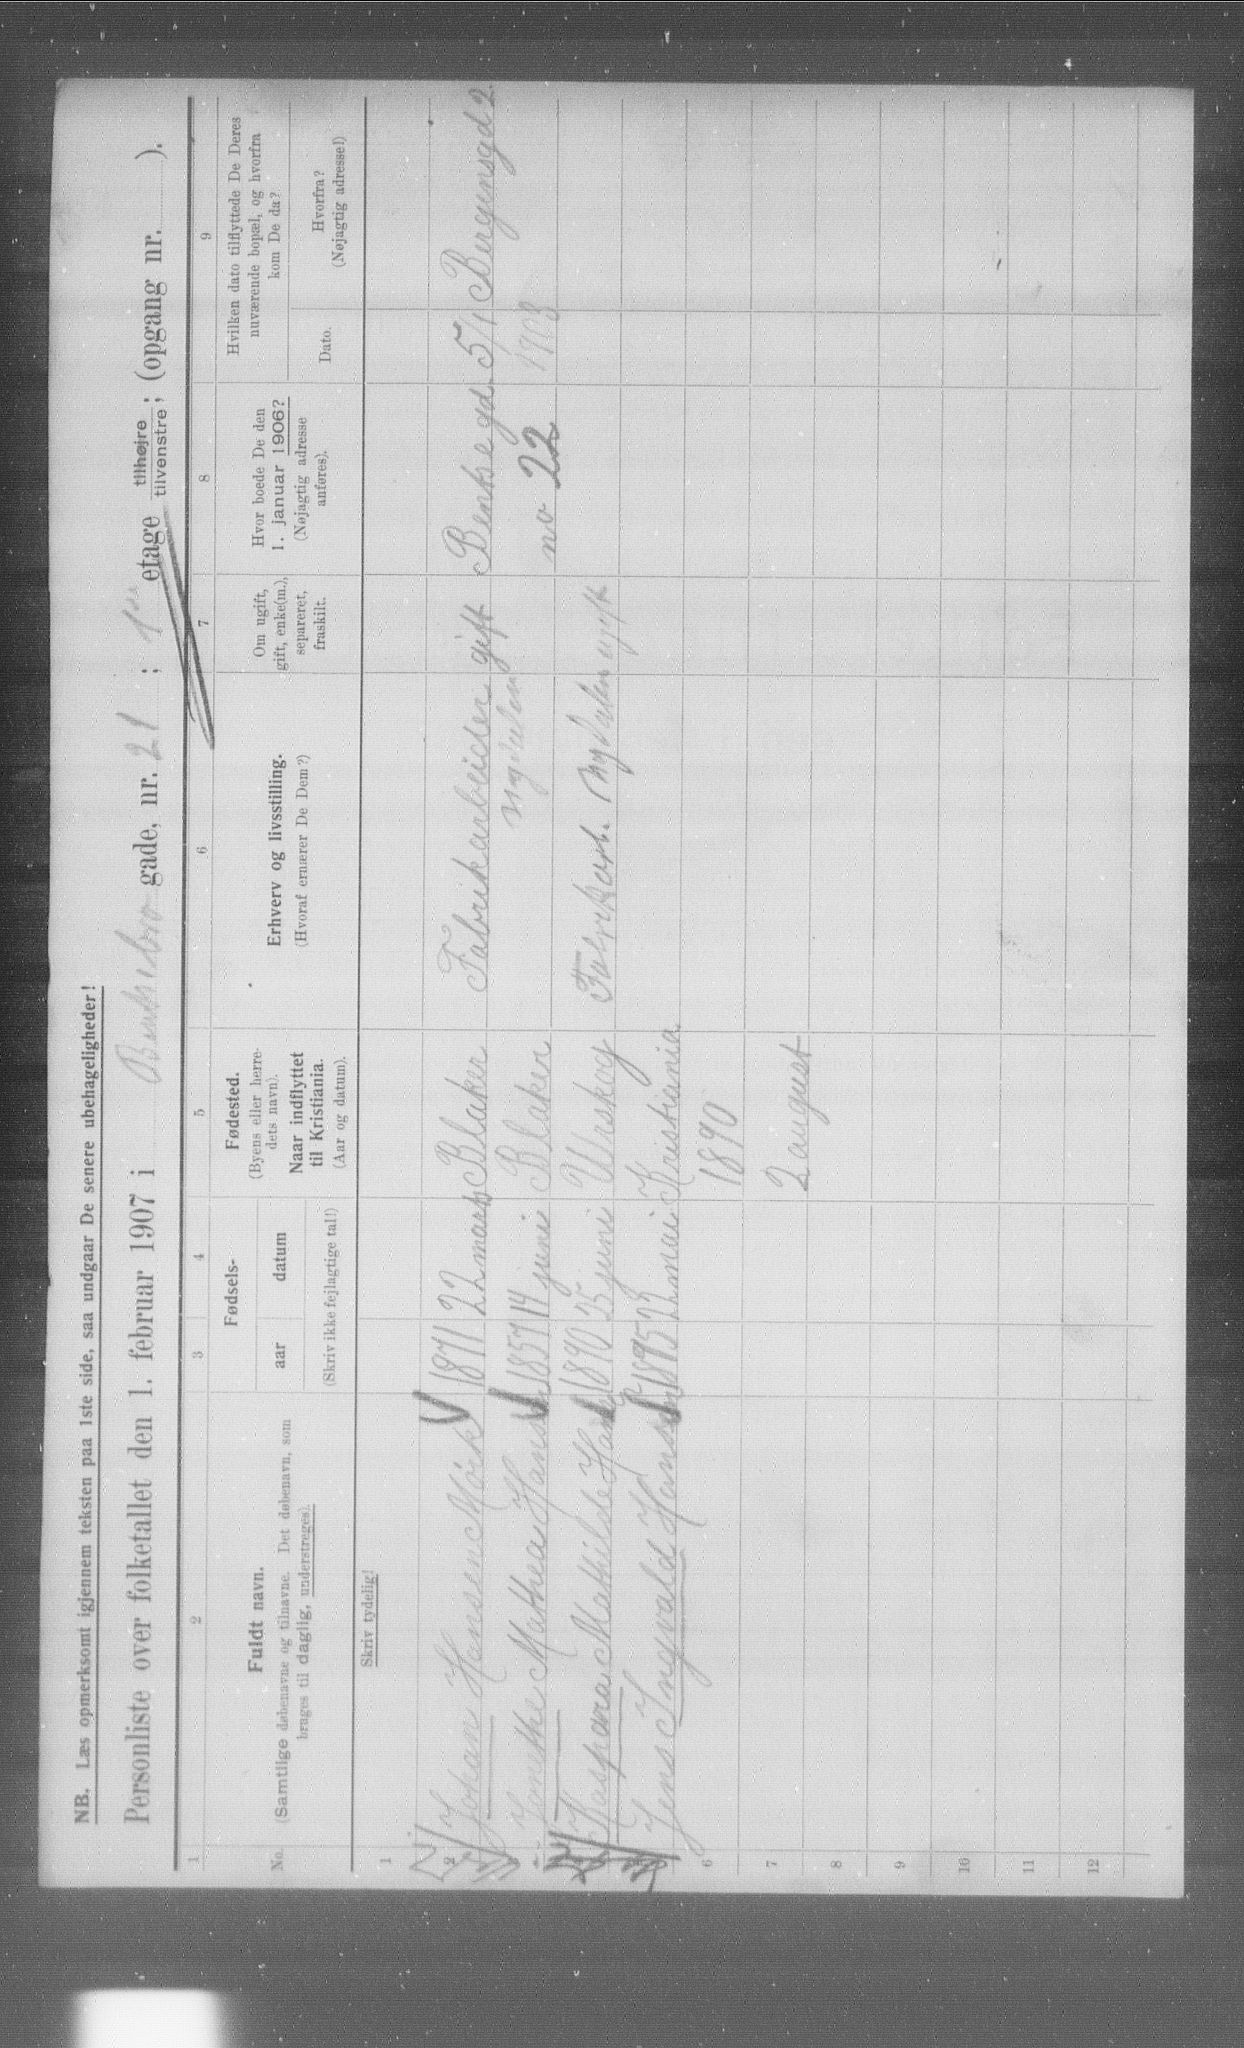 NB. Læs opmerksomt igjennem teksten paa 1ste side, saa undgaar De senere ubehageligheder!
Personliste over folketallet den 1. februar 1907 i gade, nr. 21 ; 1ste etage tilhøjre tilvenstre; (opgang nr. ).
1 2 3 4 5 6 7 8 9
No.
Fuldt navn.
(Samtlige døbenavne og tilnavne. Det døbenavn, som
bruges til daglig, understreges).
Fødsels-
aar datum
(Skriv ikke fejlagtige tal!)
Fødested.
(Byens eller herre-
dets navn).
Naar indflyttet
til Kristiania.
(Aar og datum).
Erhverv og livsstilling.
(Hvoraf ernærer De Dem?)
Om ugift,
gift, enke(m.),
separeret,
fraskilt.
Hvor boede De den
1. januar 1906?
(Nøjagtig adresse
anføres).
Hvilken dato tilflyttede De Deres
nuværende bopæl, og hvorfra
kom De da?
Dato.
Hvorfra?
(Nøjagtig adresse!)
Skriv tydelig!
1
2 Johan Hansen Mörk 1871 22 marts Blaker Fabrikarbeider gift Bentsegd. 5/1 Bergensgd 2
Jonette Mathea Hansen 1857 14 juni Blaker Nydalen no 22 1903
Kaspara Mathilde Hansen 1890 25 juni Urskog Fabrikarb. Nydalen ugift
Jens Ingvald Hansen 1895 22 mai Kristiania
6 1890
7 2 august
8
9
10
11
12